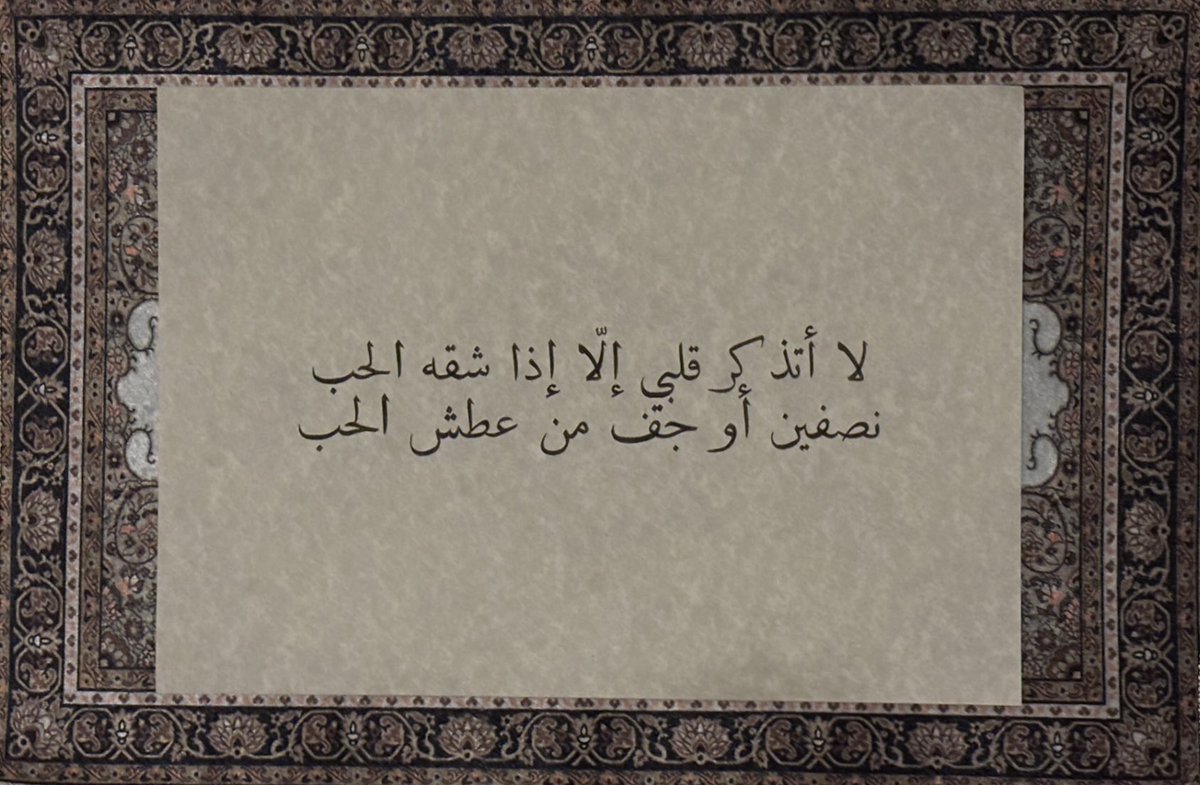 لا أتذكر قلبي إلّا إذا شقه الحب
نصفين أو جقف من عطش الحب